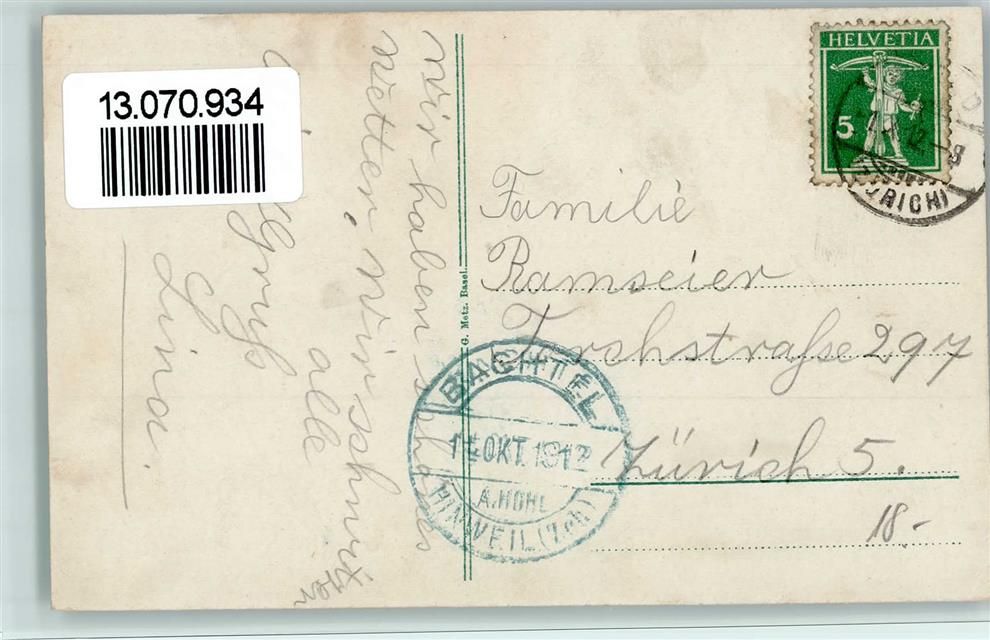 13.070.934
wir haben schönes
Wetter, wir schwitzen
alle
Gruss
Lina.
G. Metz. Basel.
HELVETIA
5
ZÜRICH
Familie
Ramseier
Forchstrasse 297
Zürich 5.
18.-
BACHTEL
14 OKT. 1912
A. HOHL
HINWEIL (Zch)